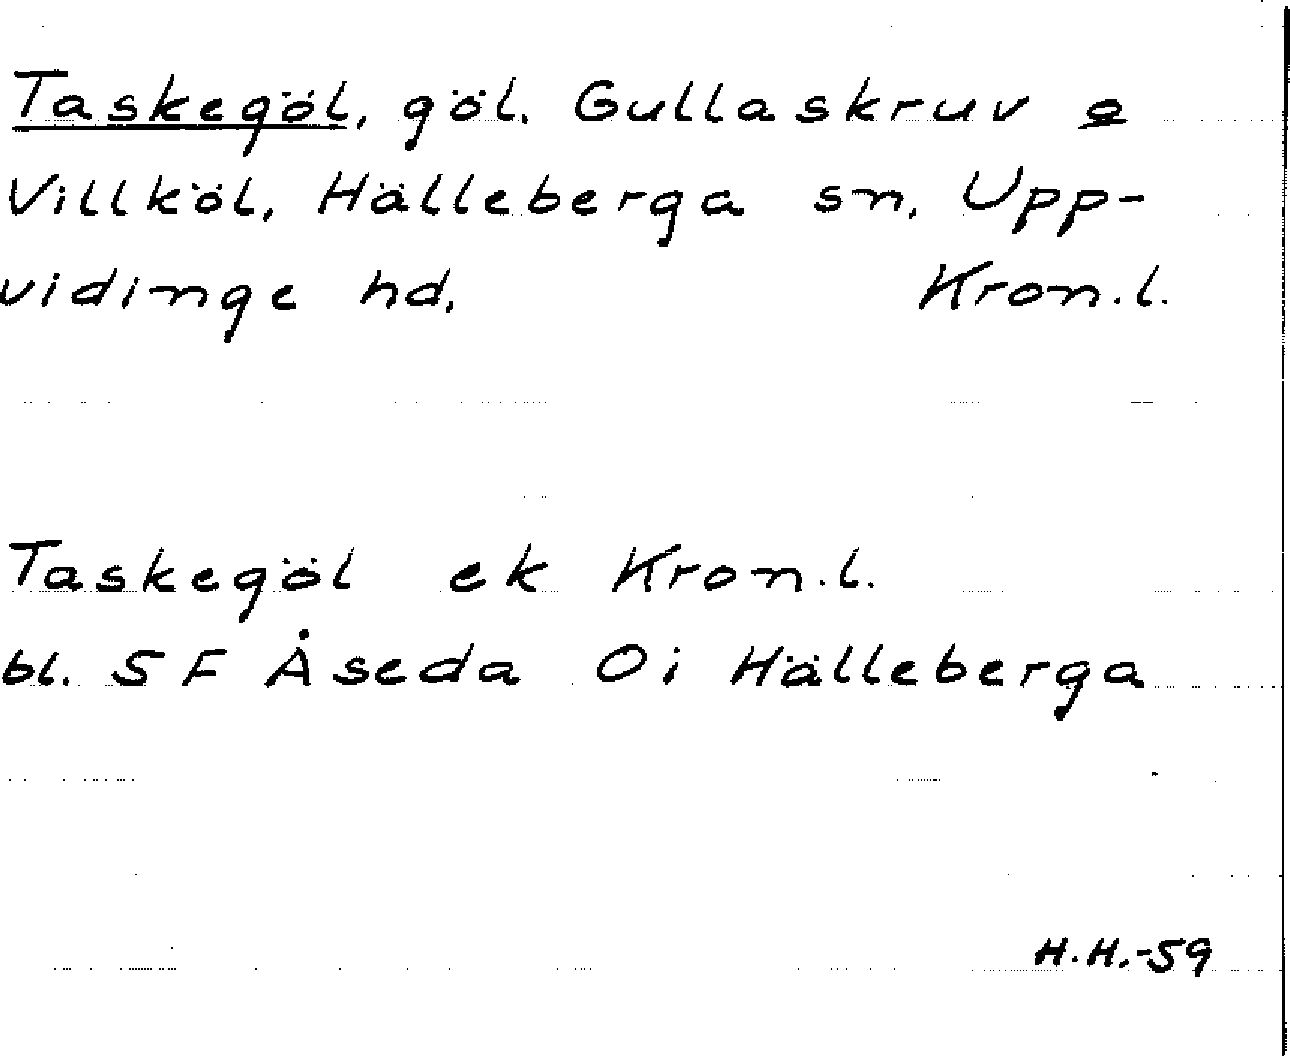 Taskegöl, göl. Gullaskruv o
Villköl, Hälleberga sn, Upp-
vidinge hd. Kron.l.
Taskegöl ek Kron.l.
bl. 5F Åseda Oi Hälleberga
H.H.-59